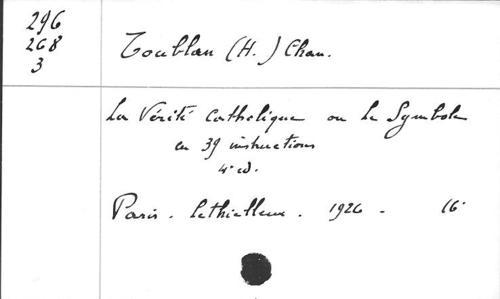 296
268
3
Toublan (H.) Chan.
La Vérité Catholique ou le Symbole
en 39 instructions
4e ed.
Paris. Lethielleux. 1926 - 16°